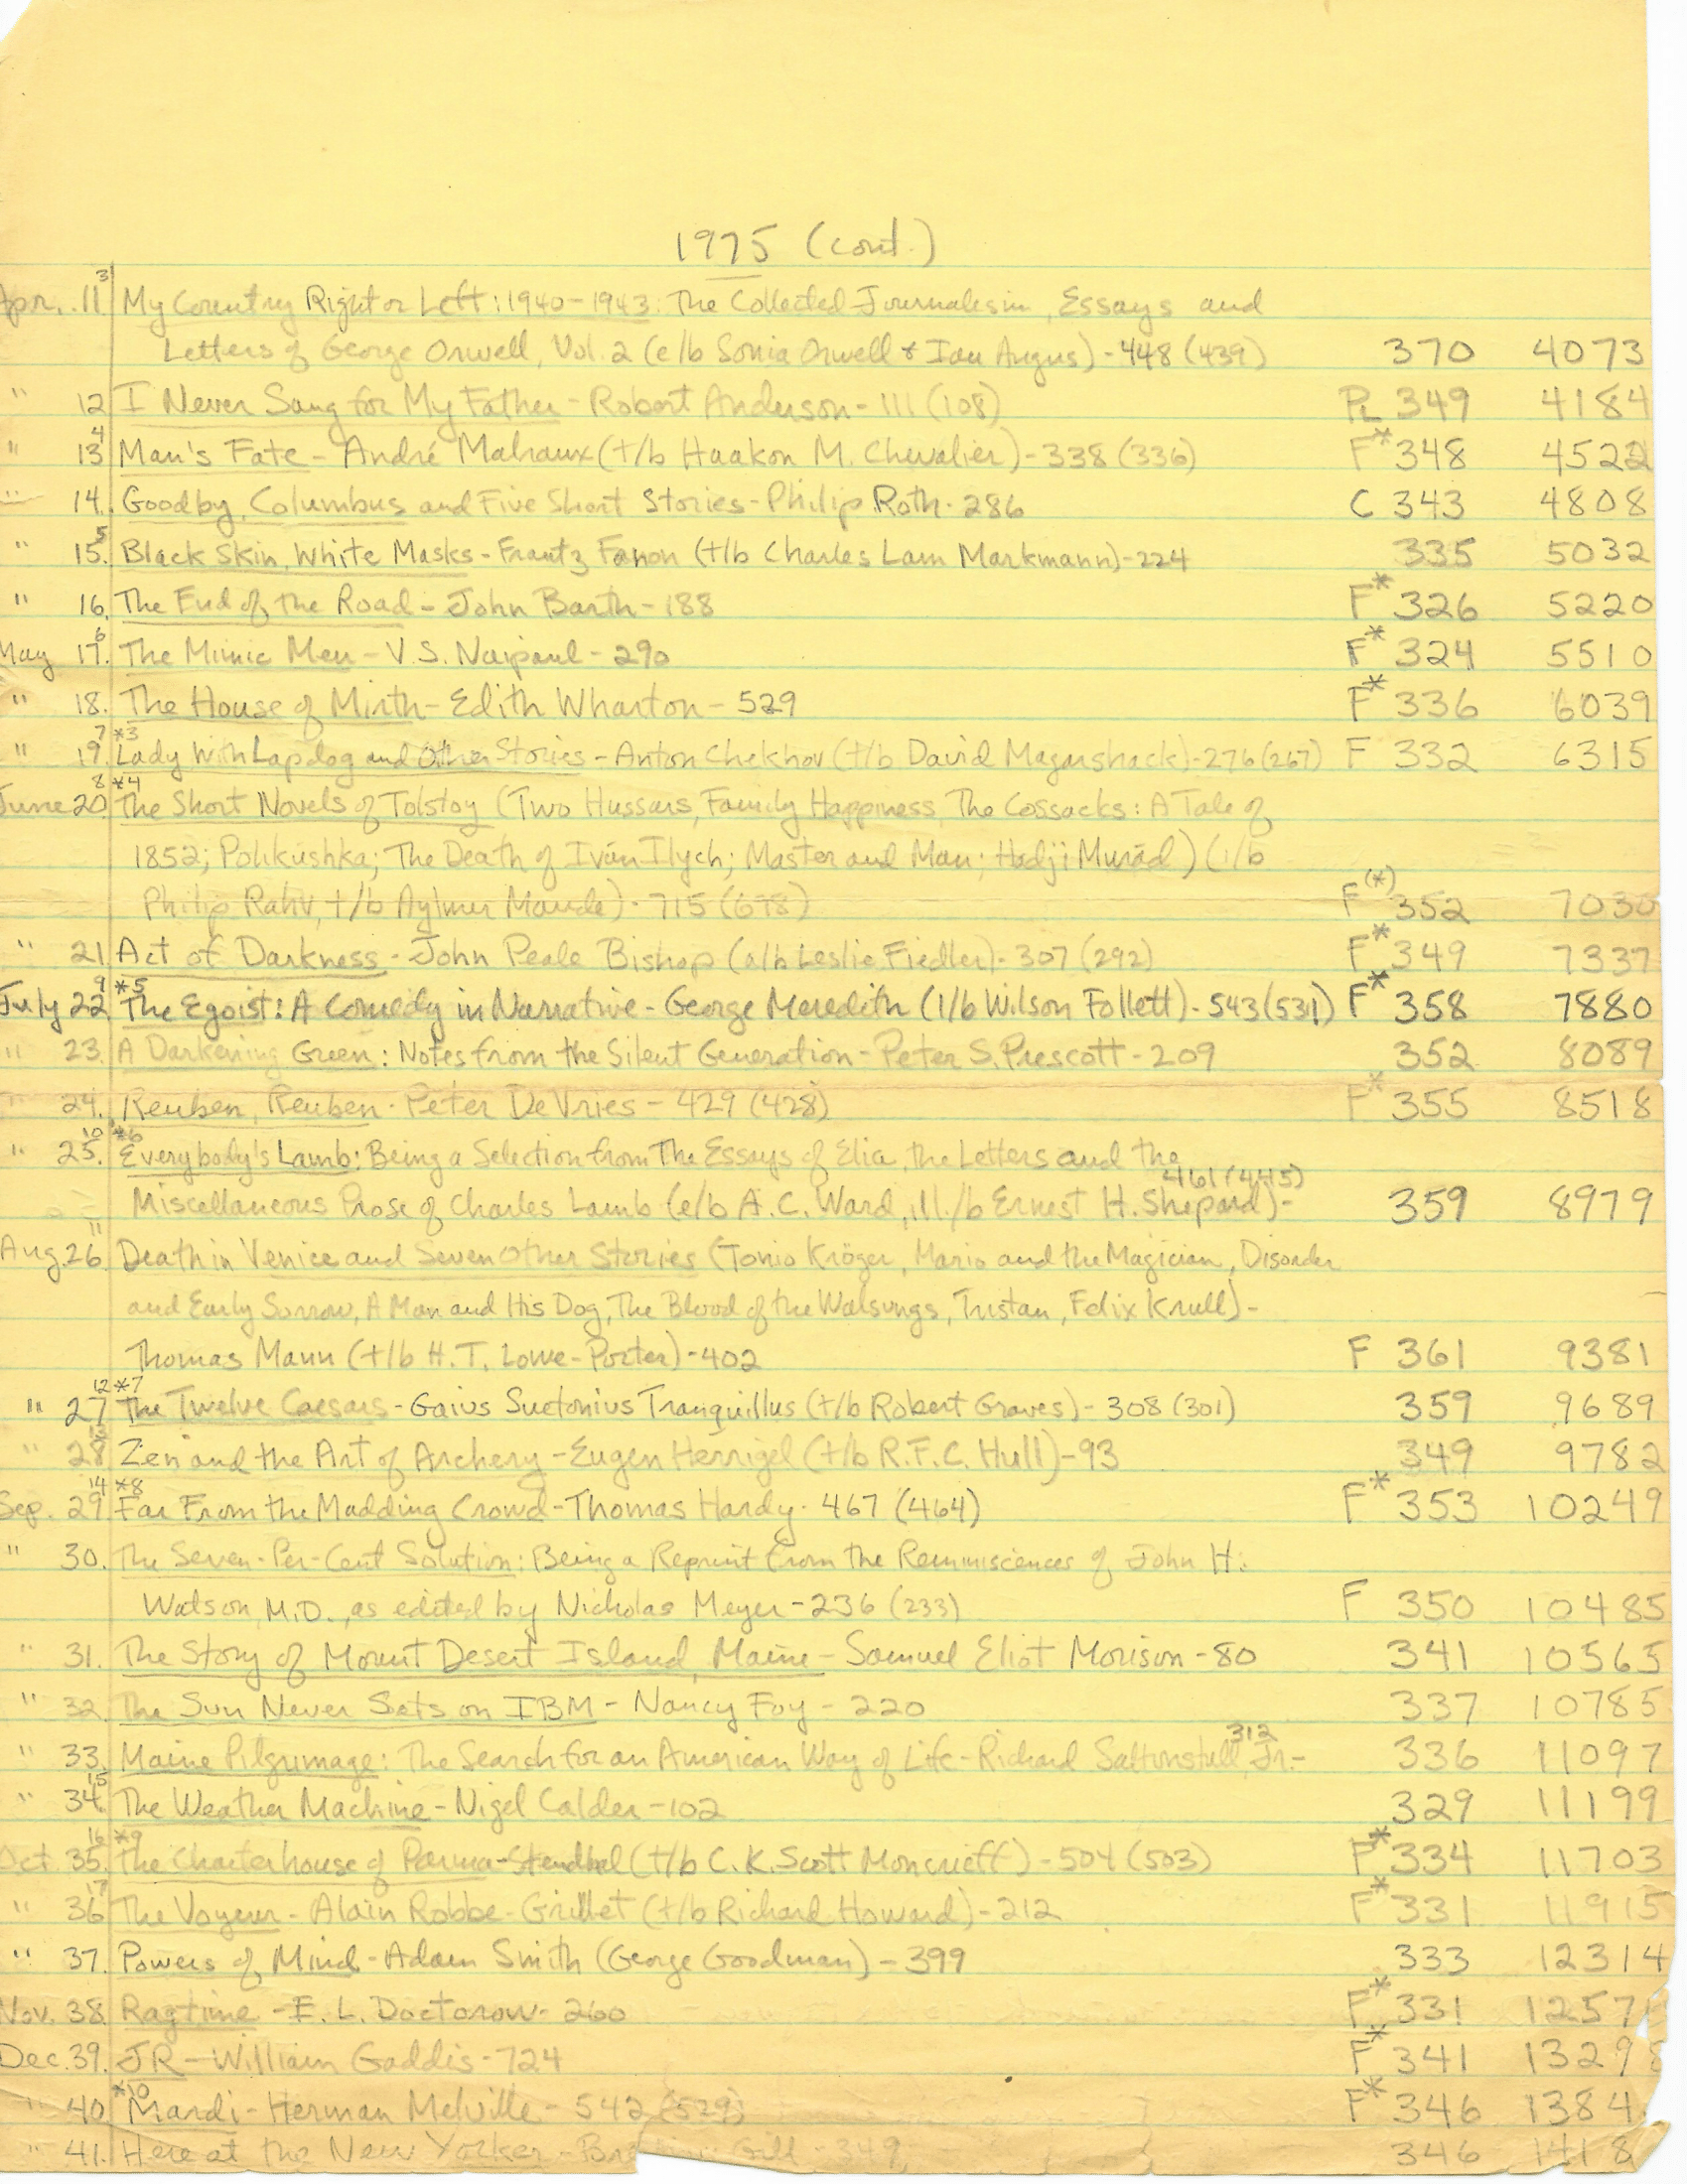 1975 (cont.)
3
Apr. 11 My Country Right or Left: 1940-1943: The Collected Journalism, Essays and
Letters of George Orwell, Vol. 2 (e/b Sonia Orwell & Ian Angus) - 448 (439) 370 4073
" 12 I Never Sang for My Father - Robert Anderson - 111 (108) PL 349 4184
4
" 13 Man's Fate - André Malraux (t/b Haakon M. Chevalier) - 338 (336) F* 348 4522
" 14. Goodby, Columbus and Five Short Stories - Philip Roth - 286 C 343 4808
5
" 15. Black Skin, White Masks - Frantz Fanon (t/b Charles Lam Markmann) - 224 335 5032
" 16. The End of the Road - John Barth - 188 F* 326 5220
6
May 17. The Mimic Men - V.S. Naipaul - 290 F* 324 5510
" 18. The House of Mirth - Edith Wharton - 529 F* 336 6039
7 *3
" 19. Lady With Lapdog and Other Stories - Anton Chekhov (t/b David Magarshack) - 276 (267) F 332 6315
8 *4
June 20. The Short Novels of Tolstoy (Two Hussars, Family Happiness, The Cossacks: A Tale of
1852; Polikushka; The Death of Iván Ilych; Master and Man; Hadji Murád) (i/b
Philip Rahv, t/b Aylmer Maude) - 715 (678) F(*) 352 7030
" 21 Act of Darkness - John Peale Bishop (a/b Leslie Fiedler) - 307 (292) F* 349 7337
9 *5
July 22 The Egoist: A Comedy in Narrative - George Meredith (i/b Wilson Follett) - 543 (531) F* 358 7880
" 23. A Darkening Green: Notes from the Silent Generation - Peter S. Prescott - 209 352 8089
" 24. Reuben, Reuben - Peter DeVries - 429 (428) F* 355 8518
10 *6
" 25. Everybody's Lamb: Being a Selection from The Essays of Elia, the Letters and the
Miscellaneous Prose of Charles Lamb (e/b A.C. Ward, ill./b Ernest H. Shepard) - 461 (445) 359 8979
11
Aug. 26 Death in Venice and Seven Other Stories (Tonio Kröger, Mario and the Magician, Disorder
and Early Sorrow, A Man and His Dog, The Blood of the Walsungs, Tristan, Felix Krull) -
Thomas Mann (t/b H.T. Lowe-Porter) - 402 F 361 9381
12 *7
" 27 The Twelve Caesars - Gaius Suetonius Tranquillus (t/b Robert Graves) - 308 (301) 359 9689
" 28 Zen and the Art of Archery - Eugen Herrigel (t/b R.F.C. Hull) - 93 349 9782
14 *8
Sep. 29. Far From the Madding Crowd - Thomas Hardy - 467 (464) F* 353 10249
" 30. The Seven-Per-Cent Solution: Being a Reprint from the Reminiscences of John H.
Watson, M.D., as edited by Nicholas Meyer - 236 (233) F 350 10485
" 31. The Story of Mount Desert Island, Maine - Samuel Eliot Morison - 80 341 10565
" 32. The Sun Never Sets on IBM - Nancy Foy - 220 337 10785
" 33. Maine Pilgrimage: The Search for an American Way of Life - Richard Saltonstall, Jr. - 312 336 11097
15
" 34. The Weather Machine - Nigel Calder - 102 329 11199
16 *9
Oct. 35. The Charterhouse of Parma - Stendhal (t/b C.K. Scott Moncrieff) - 504 (503) F* 334 11703
17
" 36 The Voyeur - Alain Robbe-Grillet (t/b Richard Howard) - 212 F* 331 11915
" 37. Powers of Mind - Adam Smith (George Goodman) - 399 333 12314
Nov. 38. Ragtime - E.L. Doctorow - 260 F* 331 1257
Dec. 39. JR - William Gaddis - 724 F* 341 13298
*10
" 40. Mardi - Herman Melville - 542 (529) F* 346 1384
" 41. Here at the New Yorker - Gill - 349 346 1418